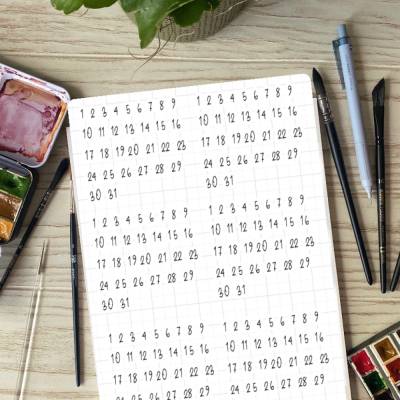 1 2 3 4 5 6 7 8 9
10 11 12 13 14 15 16
17 18 19 20 21 22 23
24 25 26 27 28 29
30 31
1 2 3 4 5 6 7 8 9
10 11 12 13 14 15 16
17 18 19 20 21 22 23
24 25 26 27 28 29
30 31
1 2 3 4 5 6 7 8 9
10 11 12 13 14 15 16
17 18 19 20 21 22 23
24 25 26 27 28 29
30 31
1 2 3 4 5 6 7 8 9
10 11 12 13 14 15 16
17 18 19 20 21 22 23
24 25 26 27 28 29
30 31
1 2 3 4 5 6 7 8 9
10 11 12 13 14 15 16
17 18 19 20 21 22 23
1 2 3 4 5 6 7 8 9
10 11 12 13 14 15 16
17 18 19 20 21 22 23
24 25 26 27 28 29